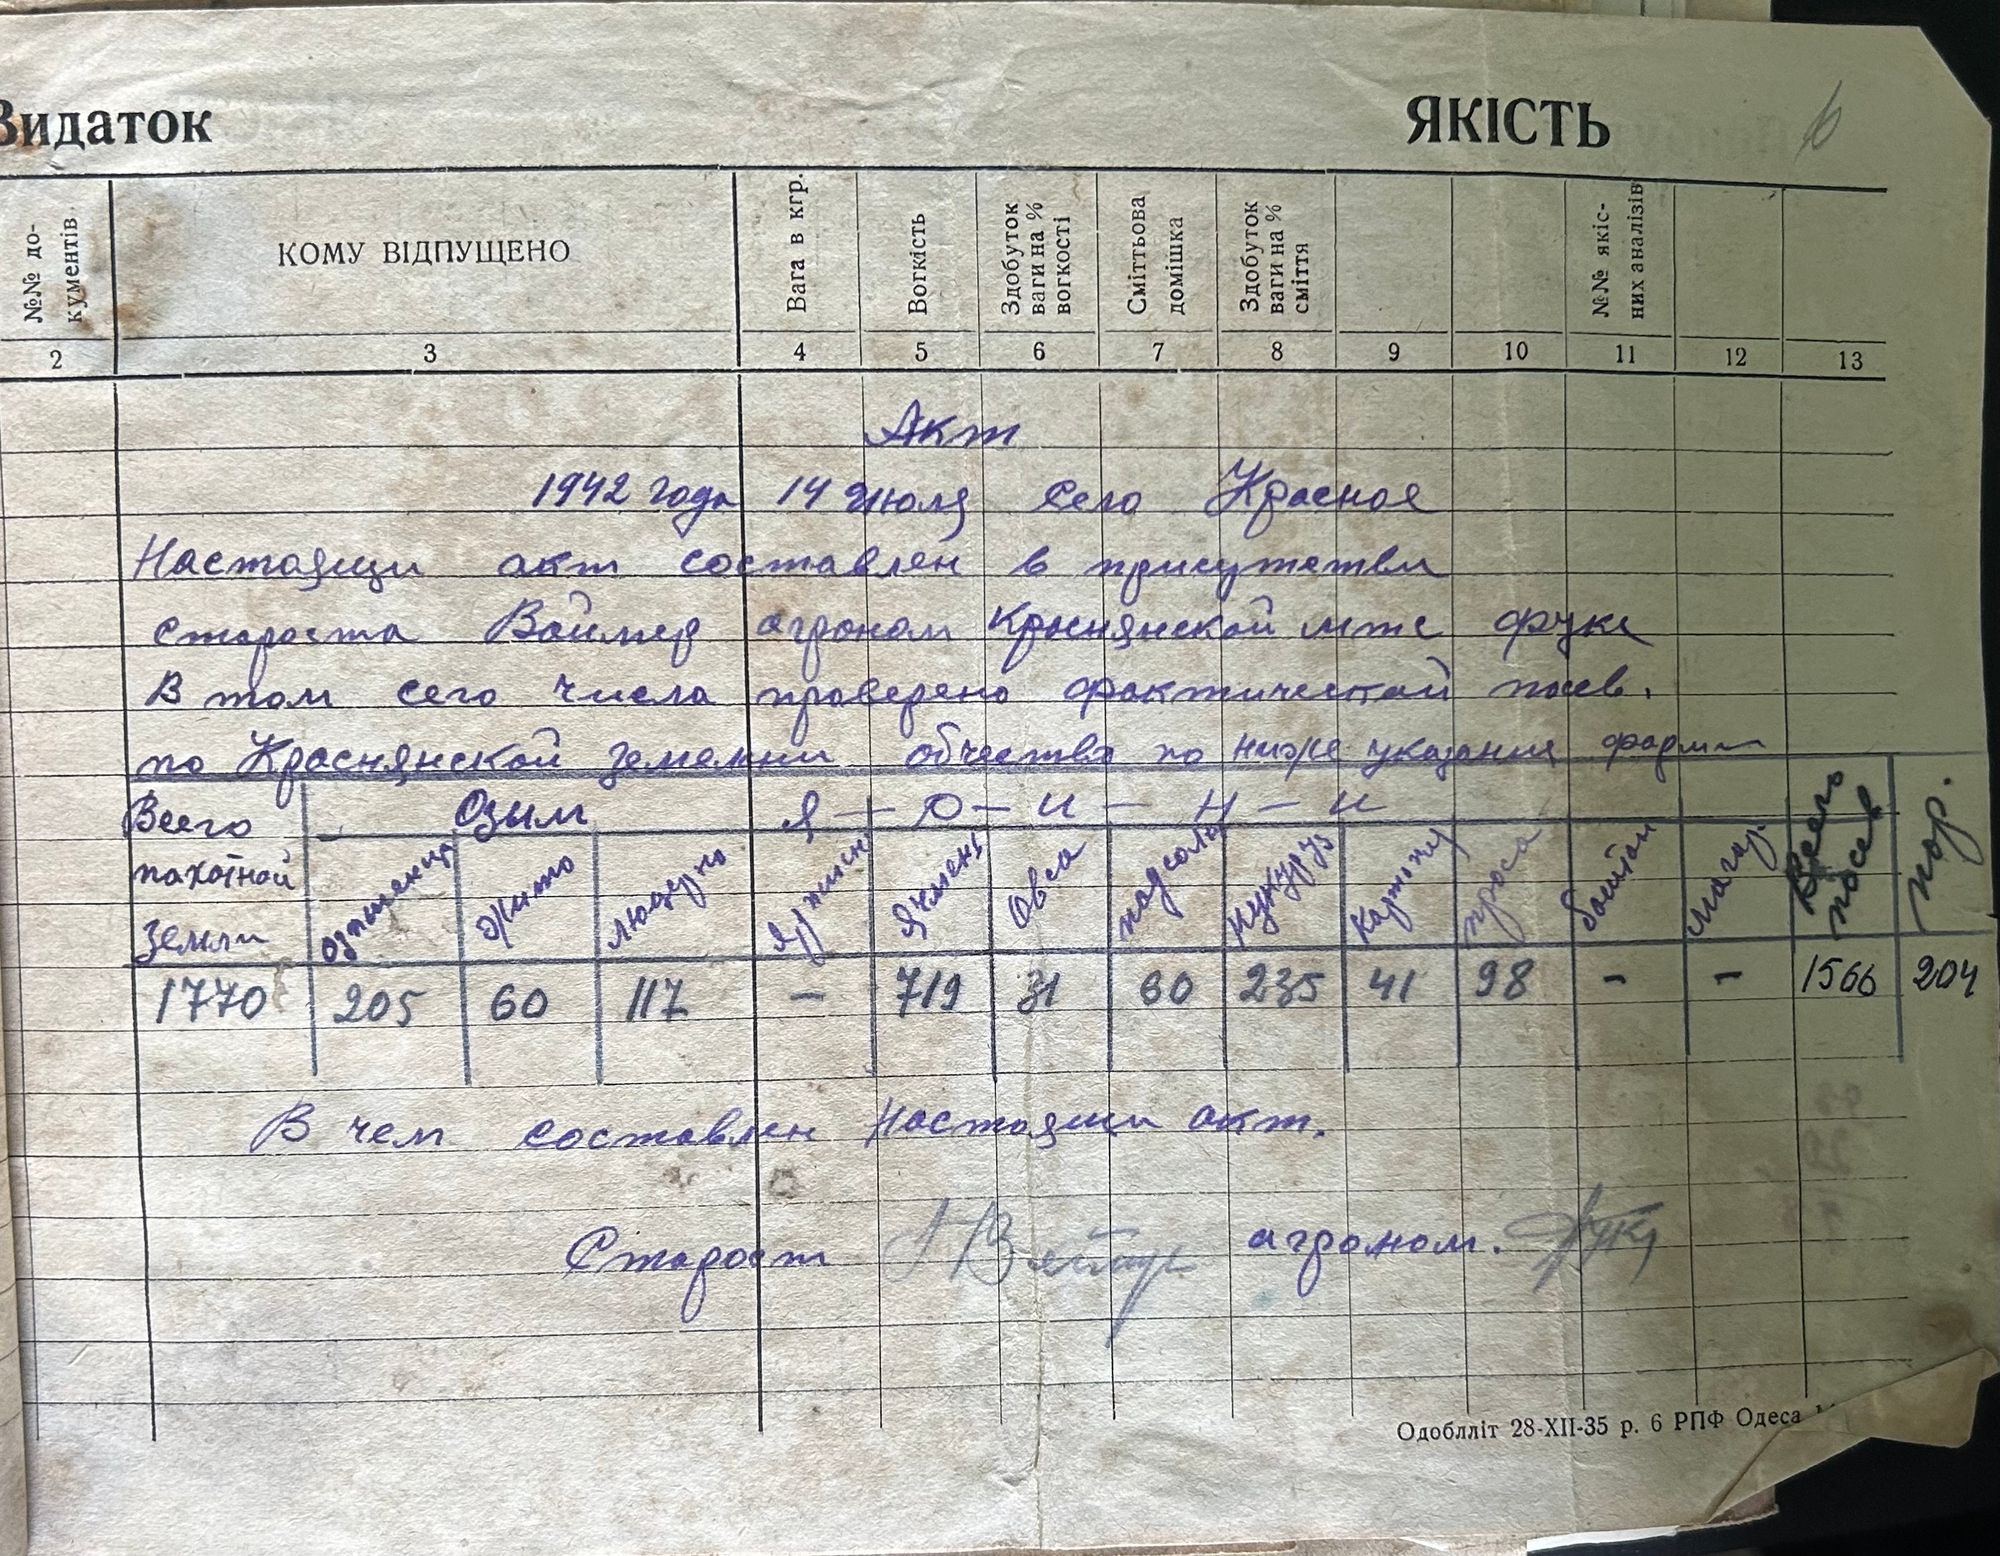 Видаток ЯКІСТЬ 6
№№ до-
кументів
КОМУ ВІДПУЩЕНО
Вага в кгр.
Вогкість
Здобуток
ваги на %
вогкості
Сміттьова
домішка
Здобуток
ваги на %
сміття
№№ якіс-
них аналізів
2 3 4 5 6 7 8 9 10 11 12 13
Акт
1942 года 14 июля село Красное
Настоящи акт составлен в присутстви
староста Ваймер агроном Краснянской мтс Фукс
В том сего числа проверено фактической посев.
по Краснянской земелни обчество по ниже указания форми
Всего
пахотной
земли
Озым
озпшеница
жито
люцерно
Яр пшен
Ячмень
Овса
подсолн
кукуруз
Картошка
проса
баштан
магар
Всего
посев
пар.
1770 205 60 117 - 719 31 60 235 41 98 - - 1566 204
В чем составлен настоящи акт.
Старост агроном. Фукс
Одоблліт 28-XII-35 р. 6 РПФ Одеса